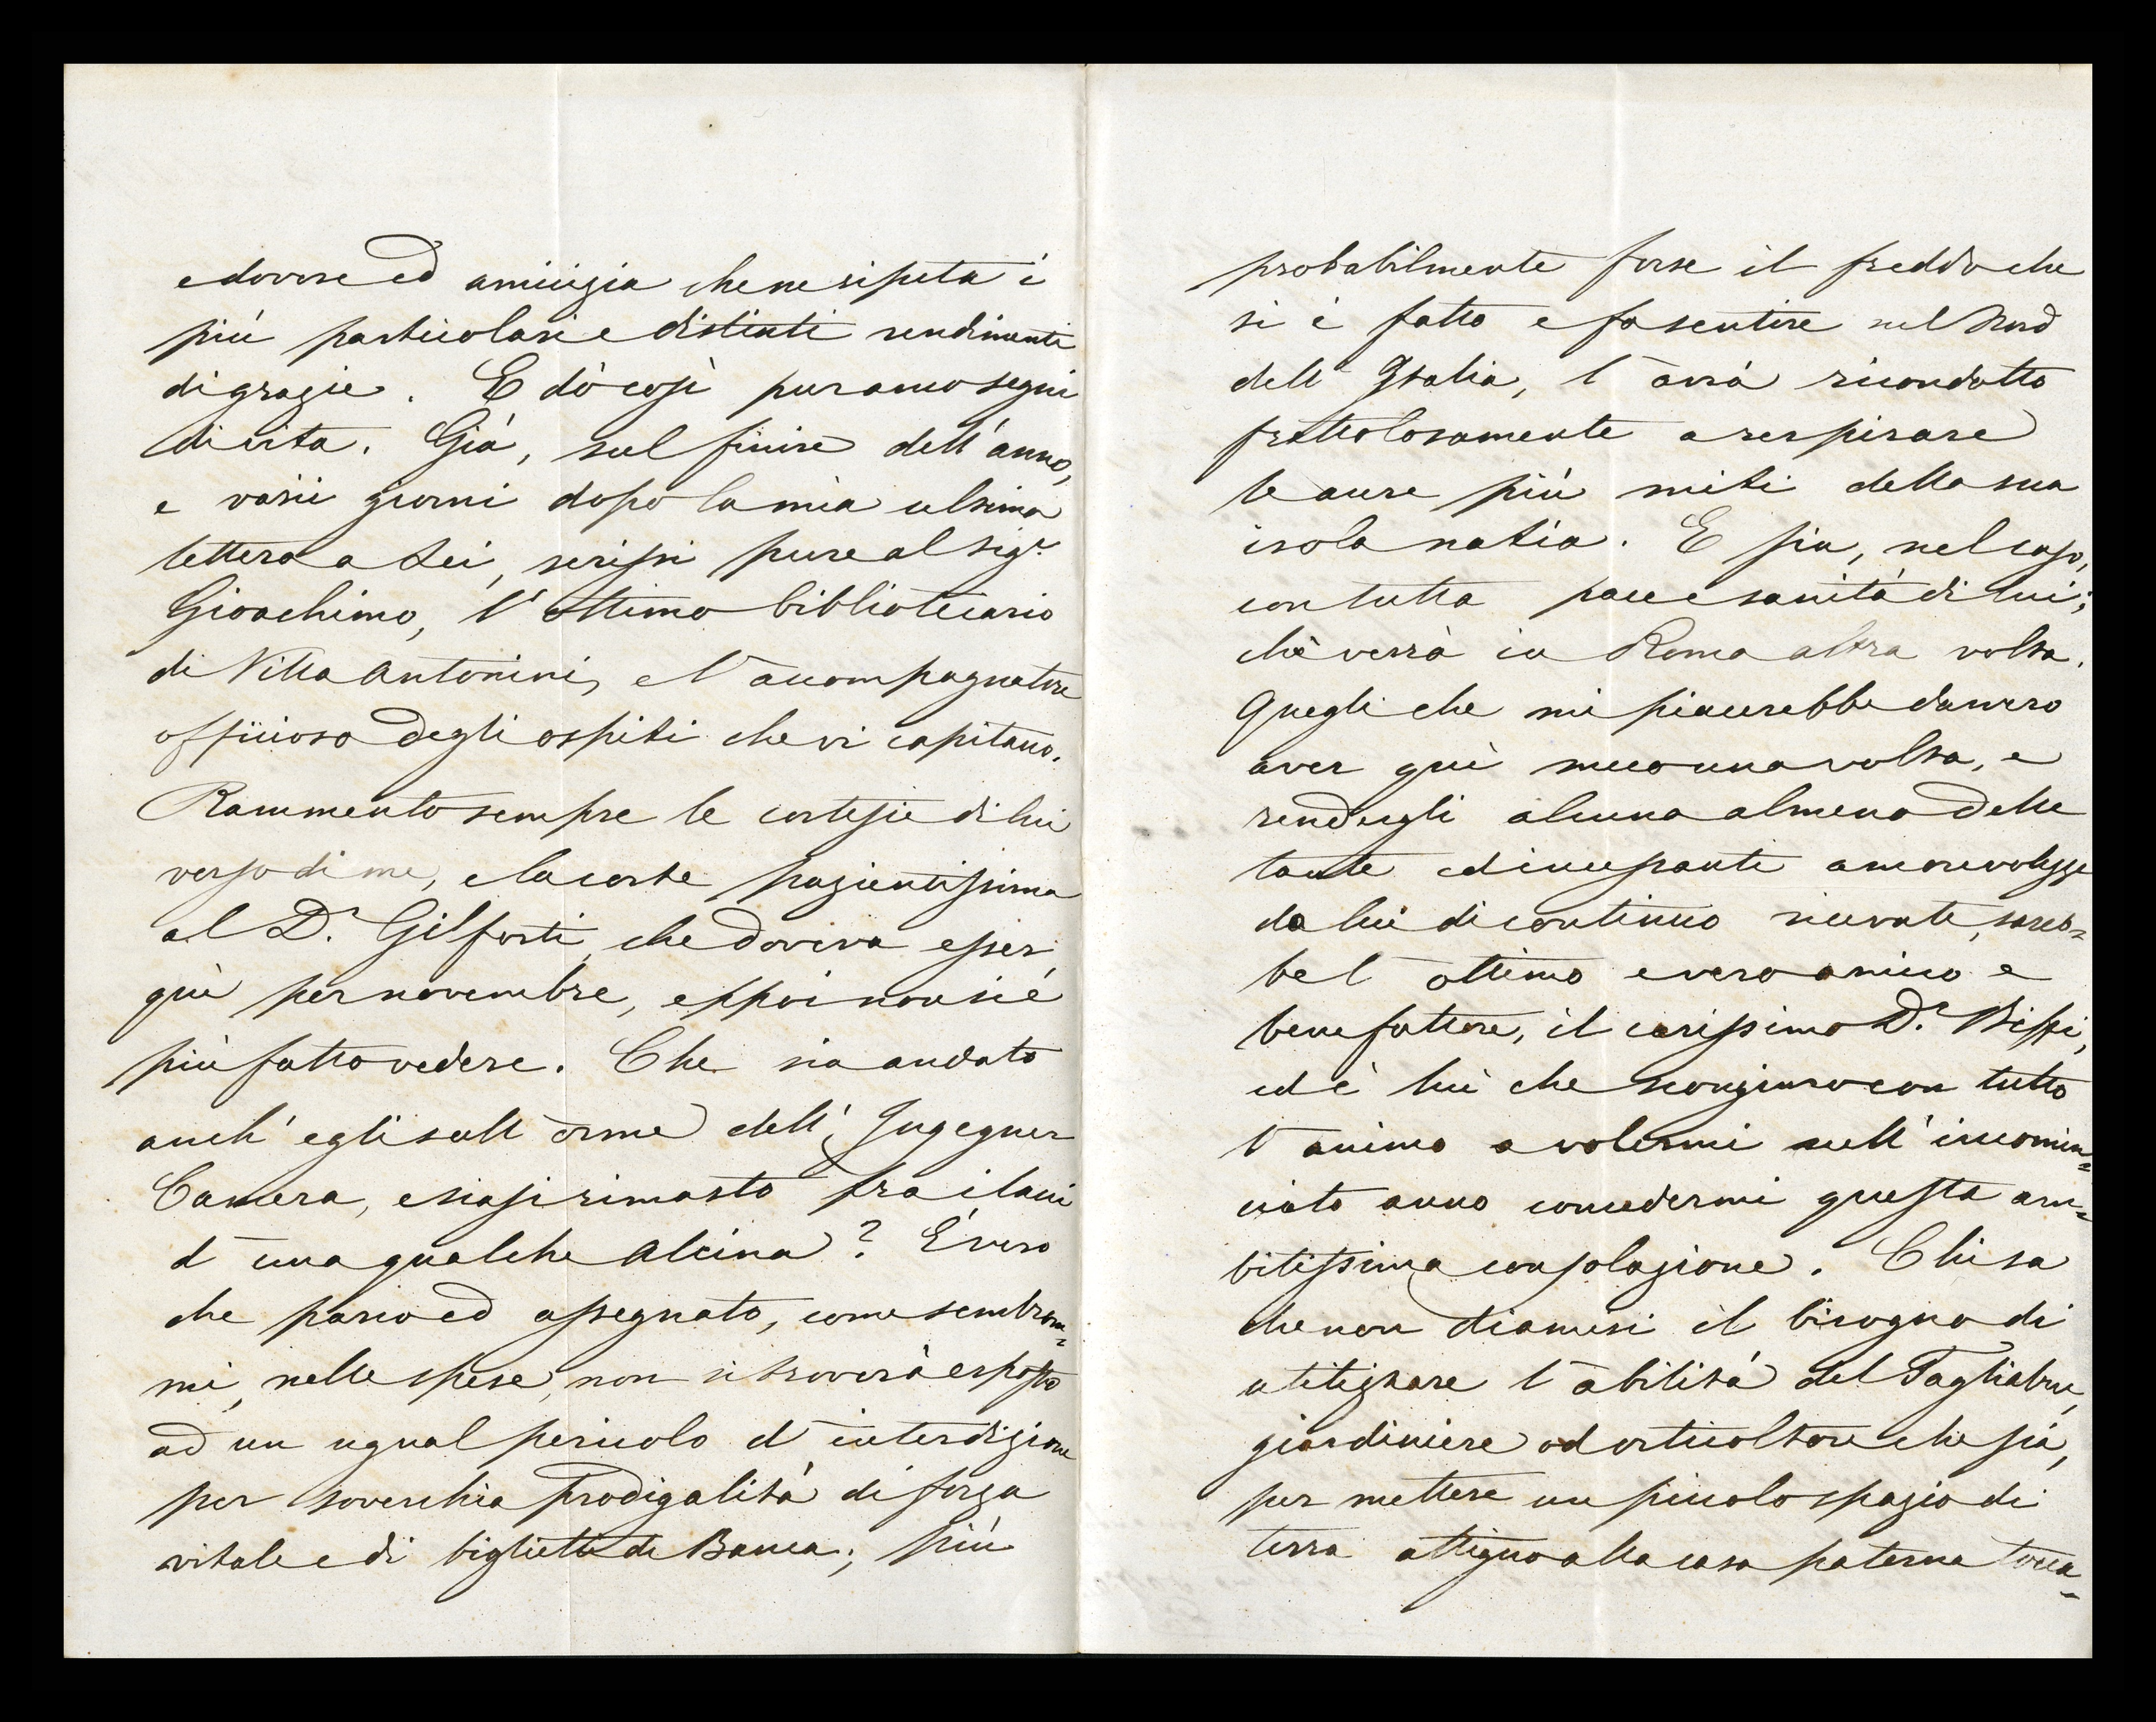 e dovere ed amicizia che ne ripeta i
più particolari e distinti rendimenti
di grazie. E dò così pur anco segni
di vita. Già, sul finire dell'anno,
e varii giorni dopo la mia ultima
lettera a Lei, scrissi pure al sigr.
Gioachimo, l'ottimo bibliotecario
di Villa Antonini, e l'accompagnatore
officioso degli ospiti che vi capitano.
Rammento sempre le cortesie di lui
verso di me, e la corte pazientissima
al Dr. Gilforti, che doveva esser
quì per novembre, eppoi non si è
più fatto vedere. Che sia andato
anch'egli sull'orme dell'Ingegner
Camera, e siasi rimasto fra i lacci
d'una qualche Alcina? È vero
che parco ed assegnato, come sembrom=
mi, nelle spese, non si troverà esposto
ad un ugual pericolo d'interdizione
per soverchia prodigalità di forza
vitale e di biglietti di Banca; più
probabilmente forse il freddo che
si è fatto e fa sentire nel Nord
dell'Italia, l'avrà ricondotto
frettolosamente a respirare
le aure più miti della sua
isola natia. E sia, nel caso,
con tutta pace e sanità di lui;
chè verrà in Roma altra volta.
Quegli che mi piacerebbe davvero
aver quì meco una volta, e
rendergli alcuna almeno delle
tante ed incessanti amorevolezze
da lui di continuo ricevute, sareb=
be l'ottimo e vero amico e
benefattore, il carissimo Dr. Bissi,
ed è lui che scongiuro con tutto
l'animo a volermi nell'incomin=
ciato anno concedermi questa am=
bitissima consolazione. Chi sa
che non diamesi il bisogno di
utilizzare l'abilità del Tagliabue,
giardiniere od orticoltore che sia,
per mettere un piccolo spazio di
terra attiguo alla casa paterna tocca=